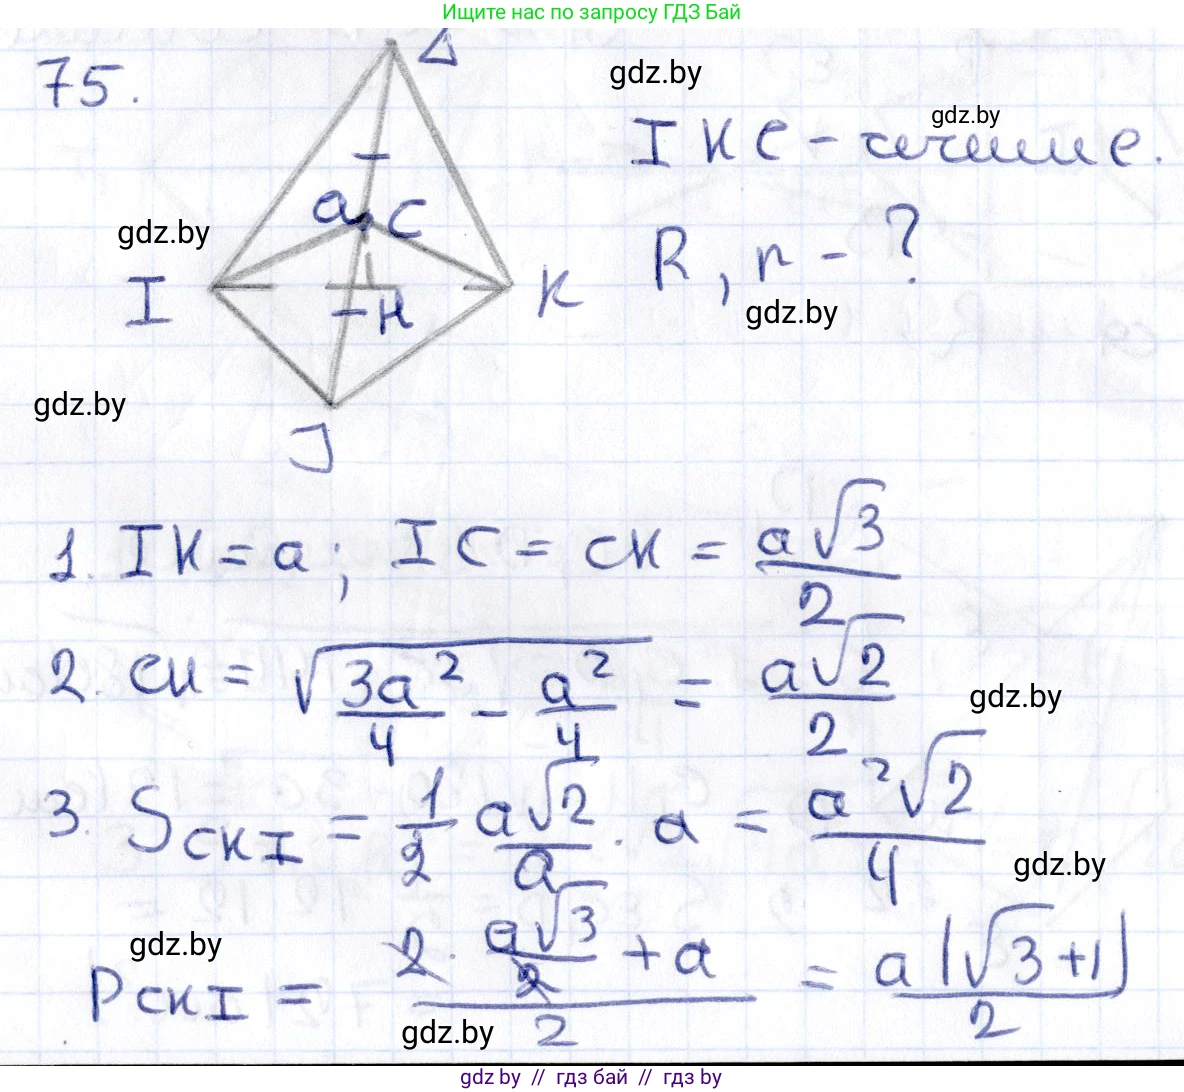 Ищите нас по запросу ГДЗ Бай
75.
Δ
gdz.by
gdz.by
IKC - сечение.
a C
gdz.by
R, r - ?
I
K
H
gdz.by
gdz.by
J
1. IK = a; IC = CK = a√3/2
2. CH = √(3a²/4 - a²/4) = a√2/2
gdz.by
3. S CKI = 1/2 a√2/a · a = a²√2/4
gdz.by
gdz.by
P CKI = (2 · a√3/2 + a)/2 = a(√3+1)/2
gdz.by
gdz.by // гдз бай // гдз by